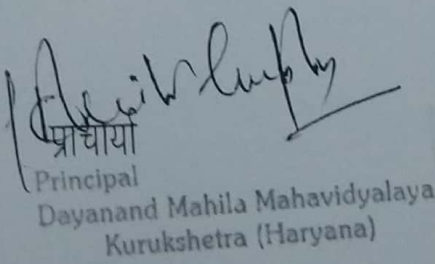 प्राचार्या
Principal
Dayanand Mahila Mahavidyalaya
Kurukshetra (Haryana)